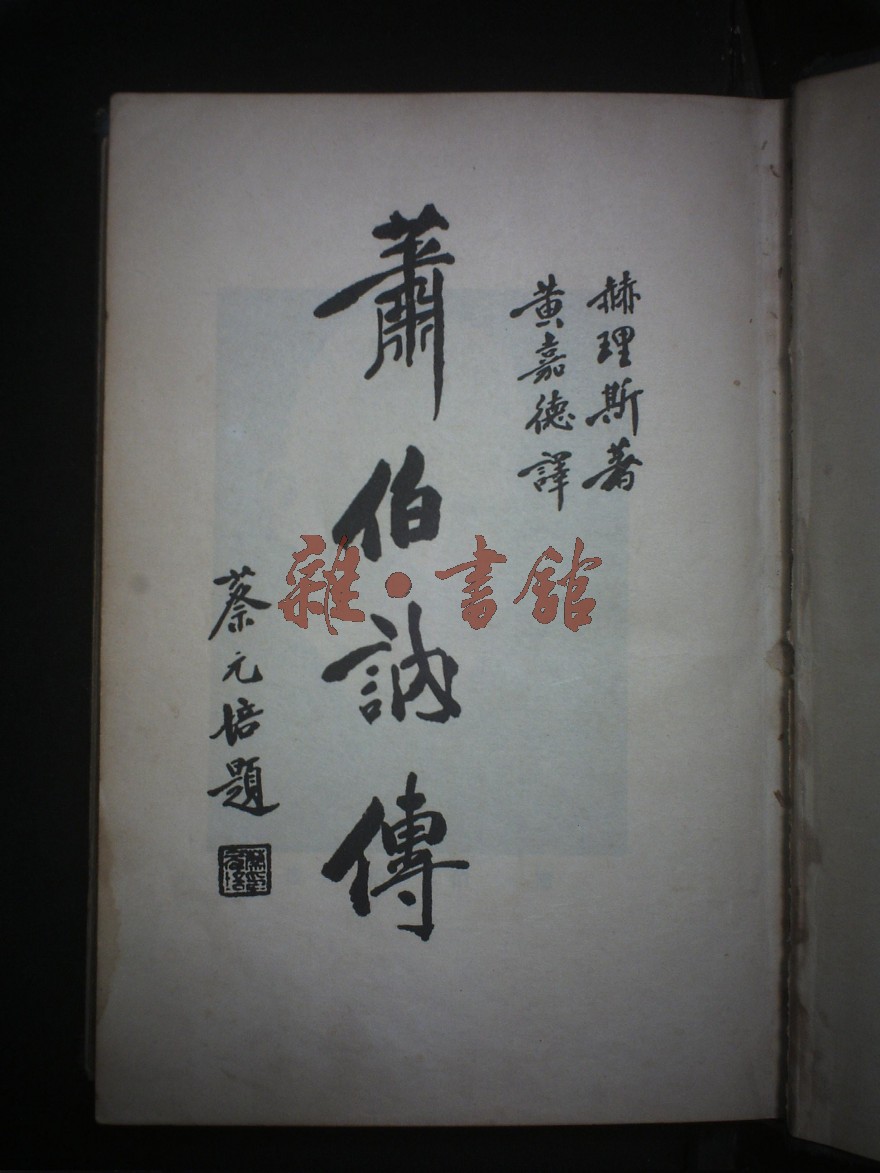 赫理斯著
黄嘉德譯
蕭伯訥傳
蔡元培題
雜·書館